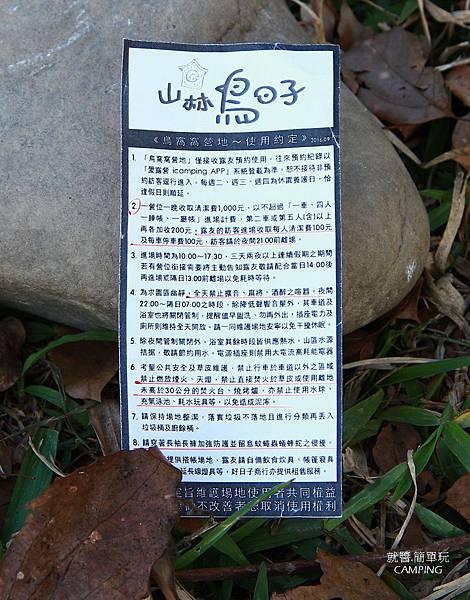 山林鳥日子
《鳥窩窩營地～使用約定》2016.09
1. 「鳥窩窩營地」僅接收露友預約使用，往來預約紀錄以
「愛露營 icamping APP」系統登載為準，恕不接待非預
約訪客逕行進入。每週二、週三、週四為休園養護日，恰
逢假日則順延。
2. 一營位一晚收取清潔費1,000元，以不超過「一車、四人
、一睡帳、一廳帳」進場計費，第二車或第五人(含)以上
再各加收200元；露友的訪客進場收取每人清潔費100元
及每車停車費100元，訪客請於夜間21:00前離場。
3. 進場時間為10:00～17:30，三天兩夜以上連續假期之期間
若有營位銜接需要將主動告知露友敬請配合當日14:00後
再進場或隔日13:00前離場以免耗時等待。
4. 為求園區幽靜，全天禁止擴音、麻將、酒醉之喧囂，夜間
22:00～隔日07:00之時段，除降低聲響音量外，其車道及
浴室也將關閉管制，提醒儘早盥洗、勿再外出，插座電力及
廁所則維持全天開放。請一同維護場地安寧以免干擾休眠。
5. 除夜間管制關閉外，浴室其餘時段皆提供熱水。山區水源
拮据，敬請節約用水。電源插座則禁用大電流高耗能電器
6. 考量公共安全及草皮維護，禁止行車於車道以外之區域
禁止燃放煙火、天燈，禁止直接焚火於草皮或使用離地
未高於30公分的焚火台、燒烤爐，亦禁止使用水球、
充氣泳池、耗水玩具等，以免造成泥濘。
7. 請保持場地整潔，落實垃圾不落地且進行分類再丟入
垃圾桶及廚餘桶。
8. 請穿著長袖長褲加強防護並留意蚊蠅蟲蟻蜂蛇之侵擾。
提供搭帳場地，露友請自備飲食炊具、帳篷寢具
延長線燈具等，好日子商行亦提供租售服務。
旨維護場地使用者共同權益
不改善者恕取消使用權利
就醬.簡單玩
CAMPING